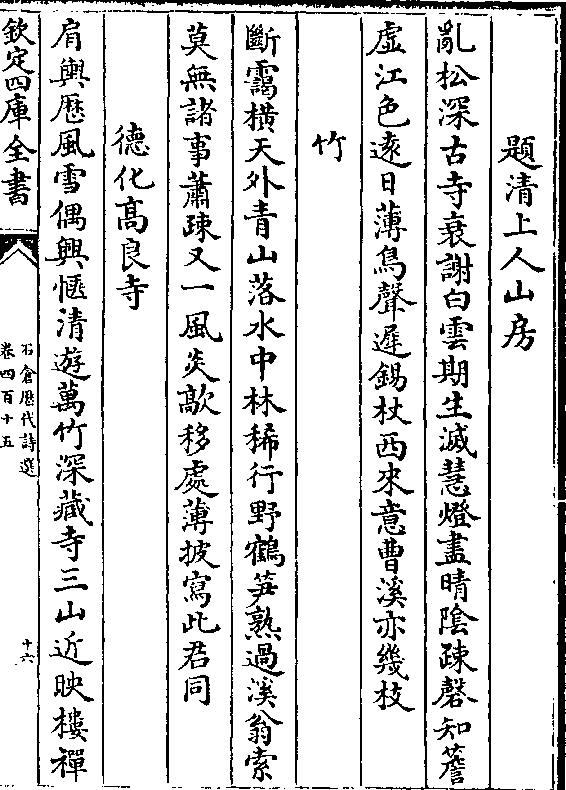 題清上人山房
亂松深古寺衰謝白雲期生滅慧燈盡晴陰疎磬知簷
虚江色逺日薄鳥聲遲錫杖西來意曹溪亦幾枝
竹
斷靄横天外青山落水中林稀行野鶴笋熟過溪翁索
莫無諸事蕭疎又一風炎歊移處薄披寫此君同
德化高良寺
肩輿歴風雪偶興愜清遊萬竹深藏寺三山近映樓禪
欽定四庫全書
石倉歴代詩選
卷四百十五
十六